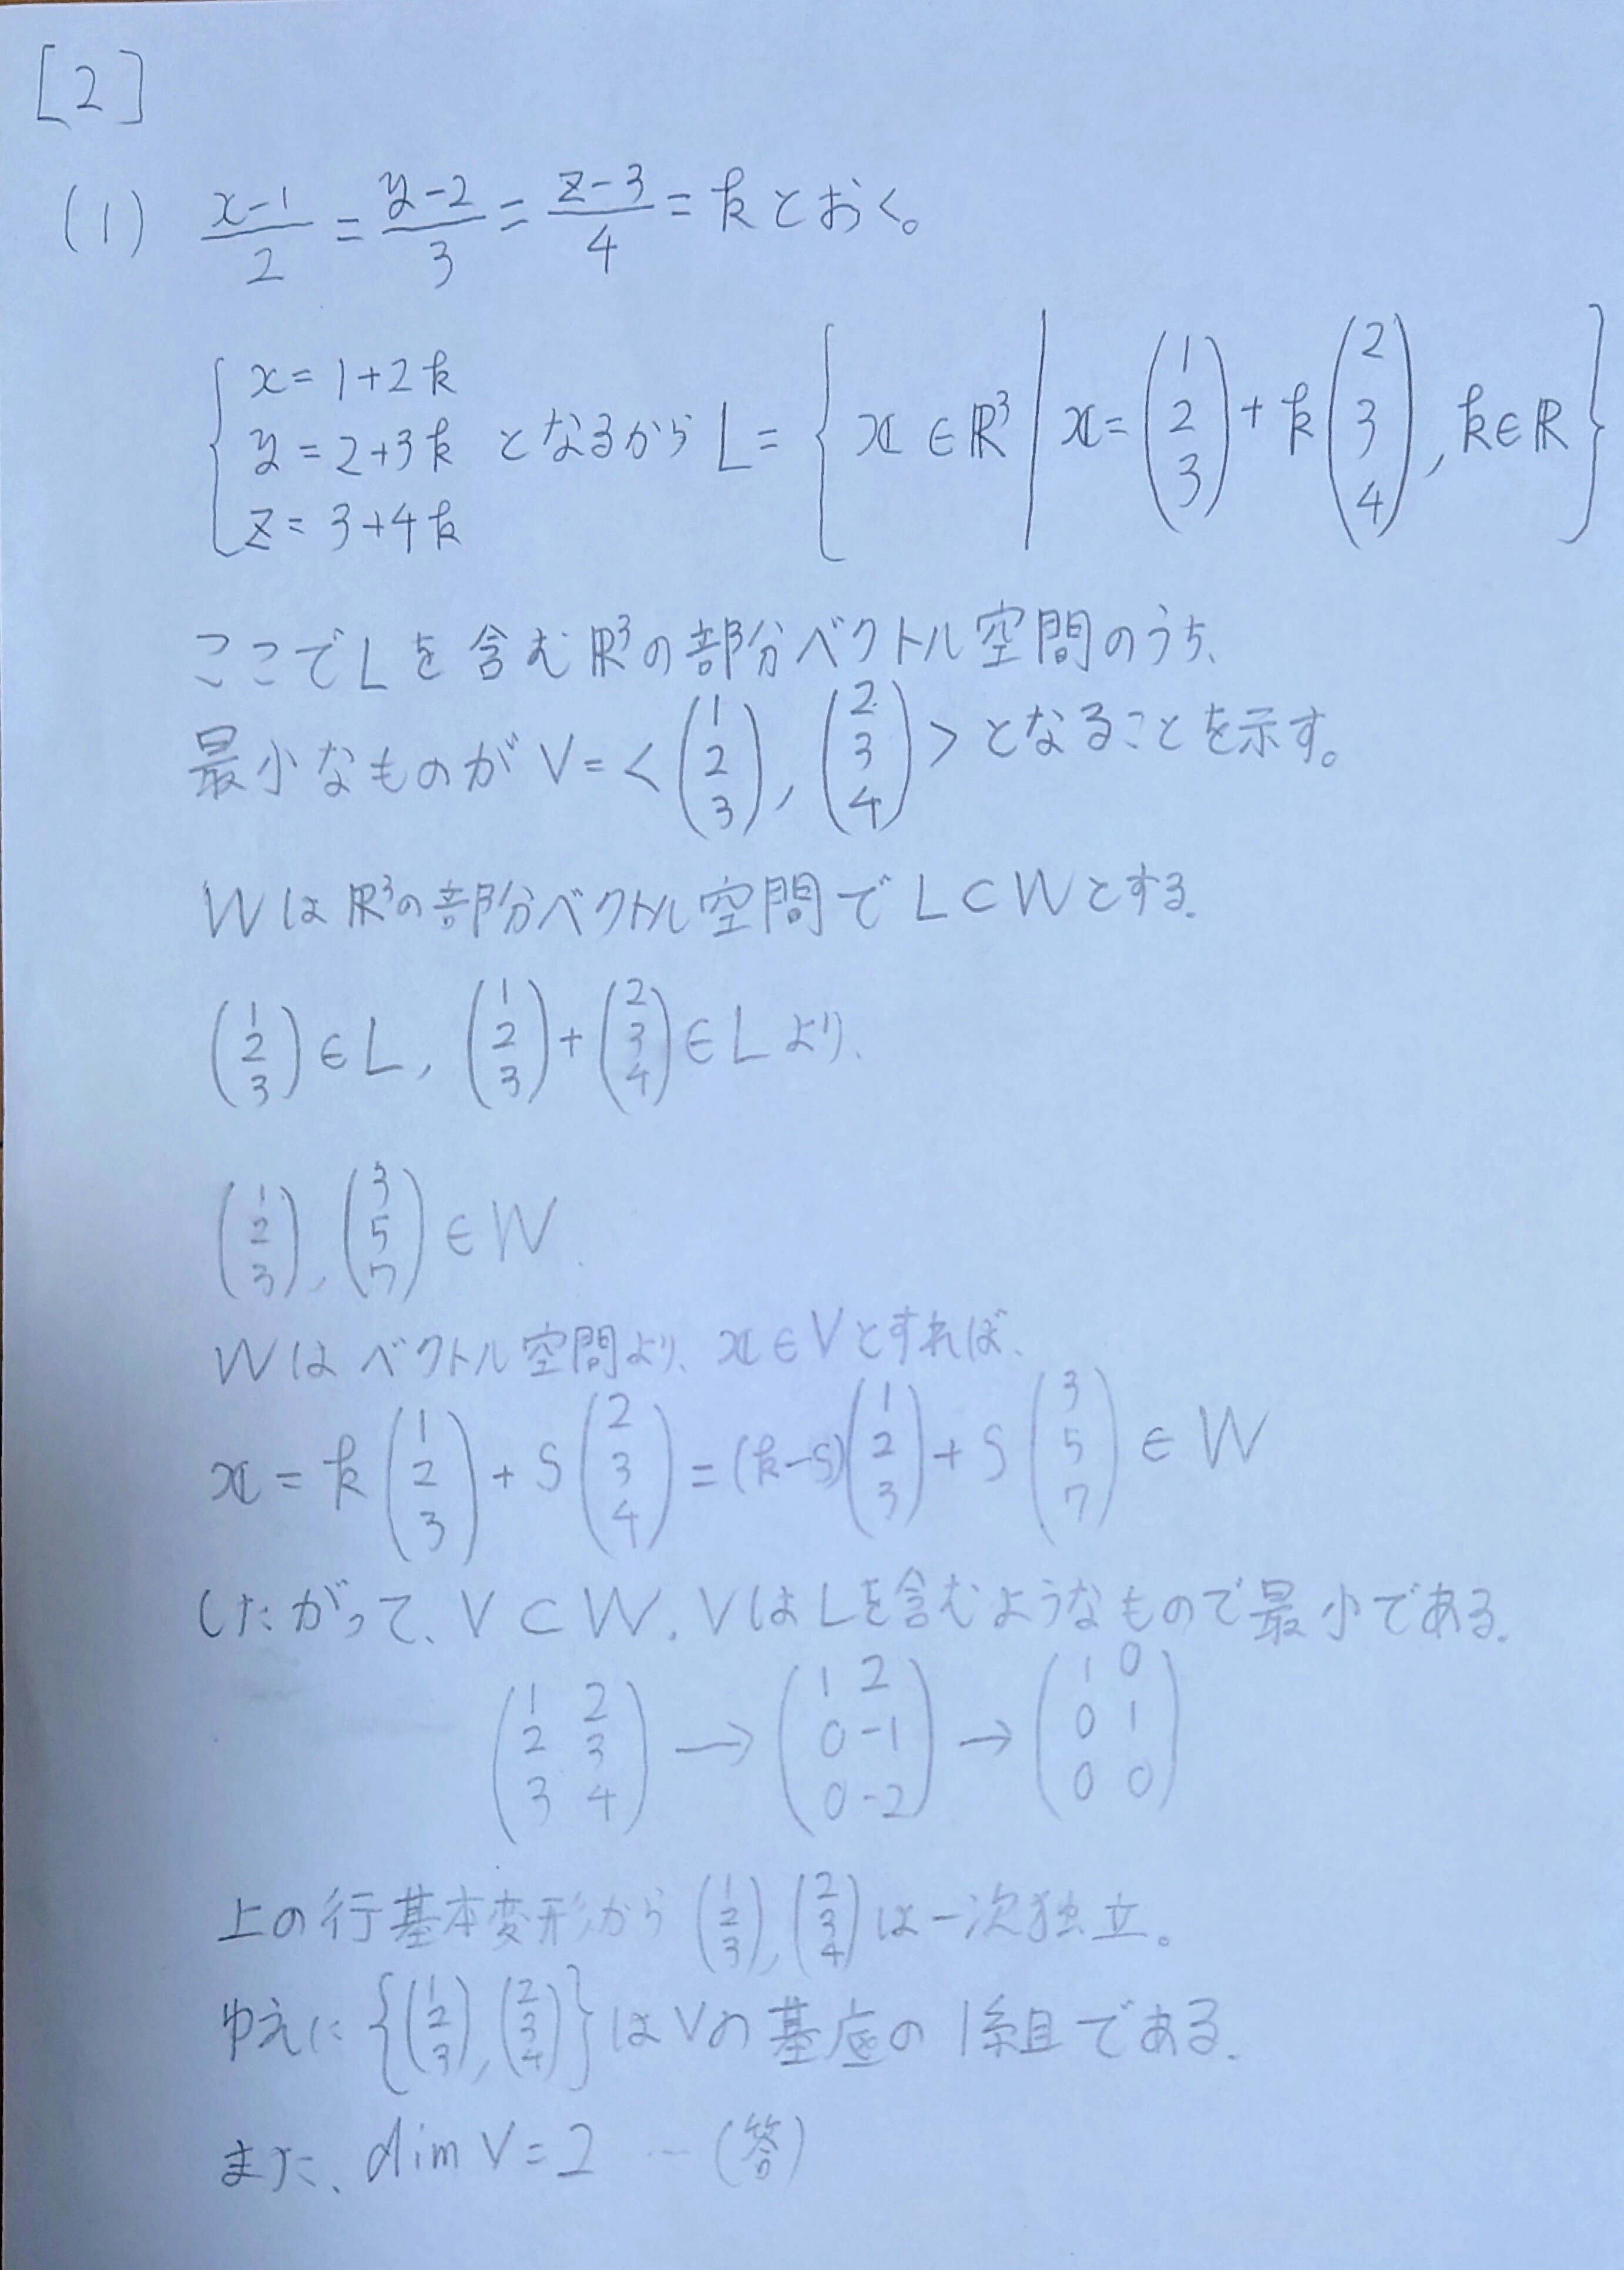 [2]
(1) (x-1)/2 = (y-2)/3 = (z-3)/4 = k とおく。
{ x = 1+2k
y = 2+3k となるから L = { x ∈ ℝ³ | x = (1 2 3) + k (2 3 4), k∈ℝ }
z = 3+4k
ここで L を含む ℝ³の部分ベクトル空間のうち、
最小なものが V = < (1 2 3), (2 3 4) > となることを示す。
W は ℝ³の部分ベクトル空間で L ⊂ W とする.
(1 2 3) ∈ L, (1 2 3) + (2 3 4) ∈ L より、
(1 2 3), (3 5 7) ∈ W.
W は ベクトル空間より、x ∈ V とすれば、
x = k (1 2 3) + s (2 3 4) = (k-s) (1 2 3) + s (3 5 7) ∈ W
したがって、V ⊂ W. V は L を含むようなもので最小である.
(1 2
2 3
3 4) → (1 2
0 -1
0 -2) → (1 0
0 1
0 0)
上の行基本変形から (1 2 3), (2 3 4) は一次独立。
ゆえに { (1 2 3), (2 3 4) } は V の基底の1組である.
また、dim V = 2 … (答)